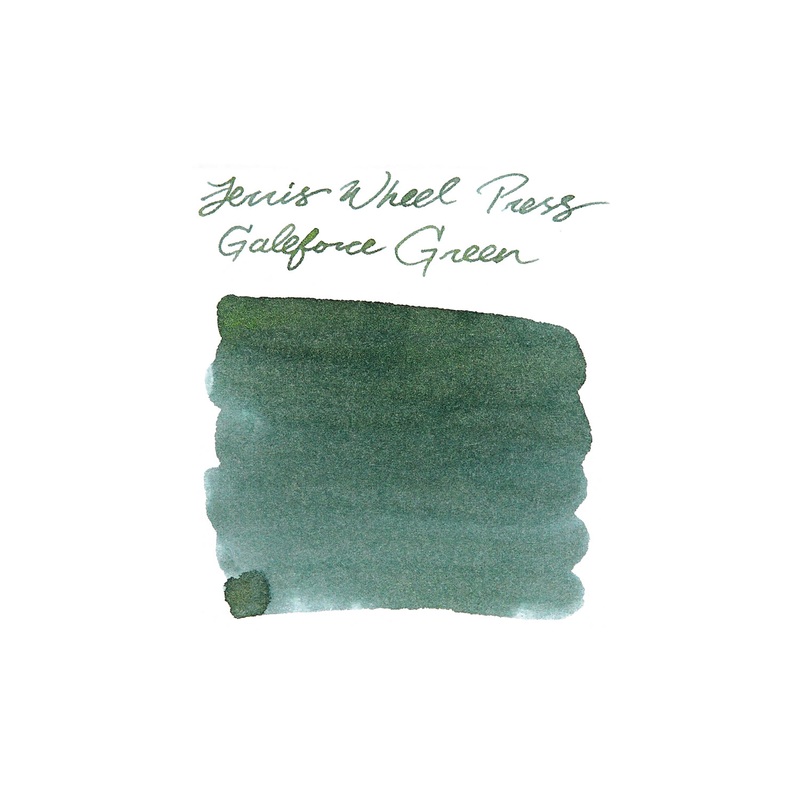 Ferris Wheel Press
Galeforce Green